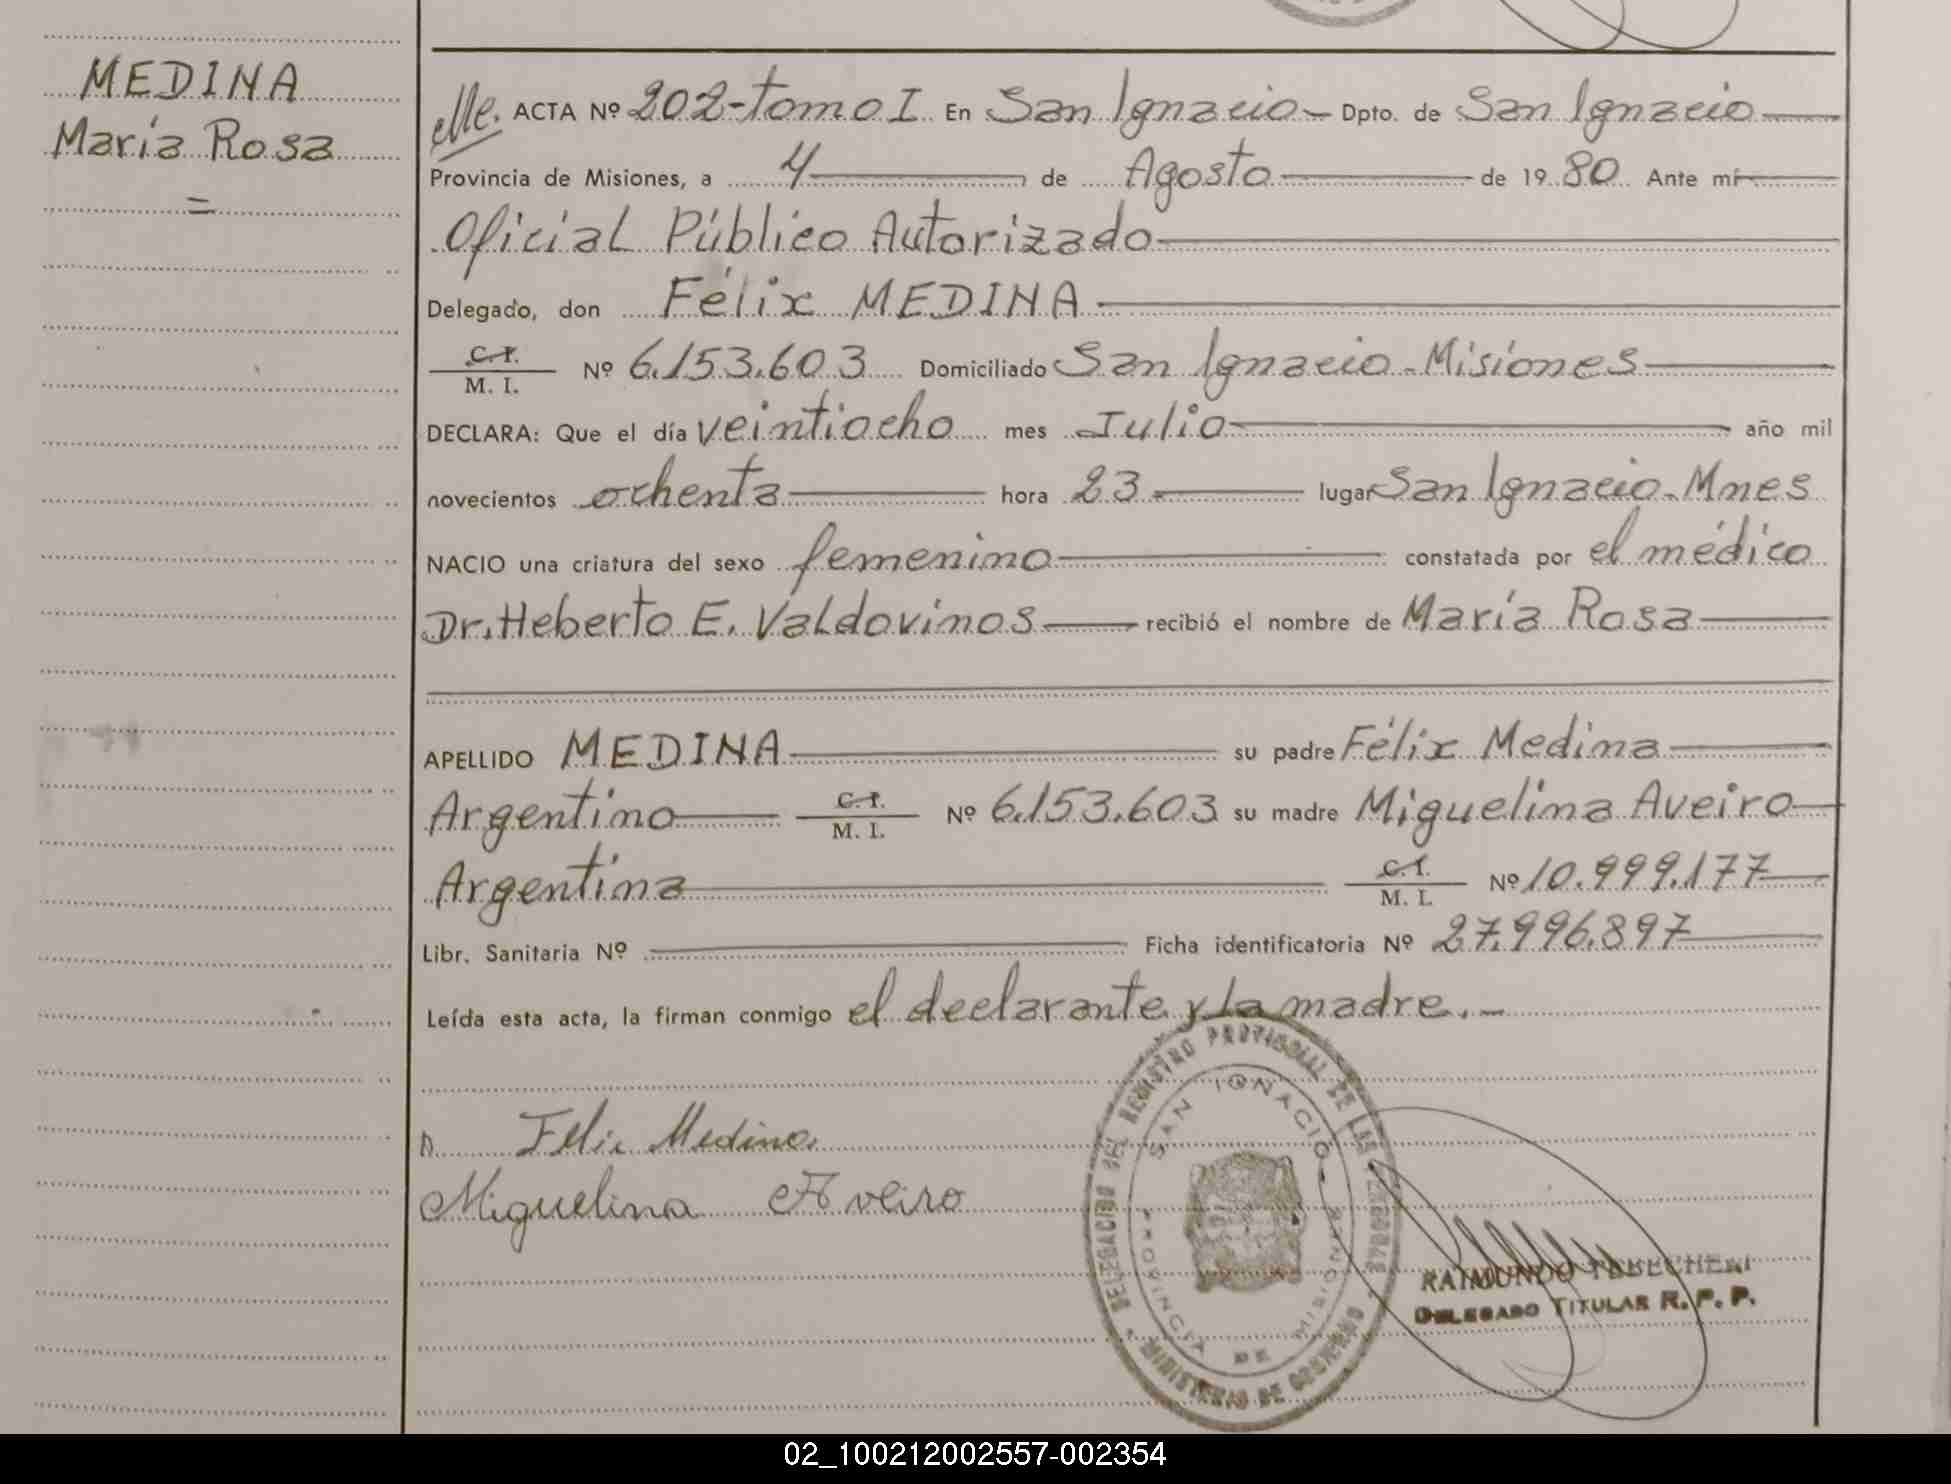 MEDINA
María Rosa
=
ACTA Nº 202-tomo I. En San Ignacio Dpto. de San Ignacio
Provincia de Misiones, a 4 de Agosto de 19 80 Ante mí
Oficial Público Autorizado
Delegado, don Félix MEDINA
C. I.
M. I. Nº 6.153.603 Domiciliado San Ignacio-Misiones
DECLARA: Que el día veintiocho mes Julio año mil
novecientos ochenta hora 23 lugar San Ignacio-Mnes
NACIO una criatura del sexo femenino constatada por el médico
Dr. Heberto E. Valdovinos recibió el nombre de María Rosa
APELLIDO MEDINA su padre Félix Medina
Argentino C. I. M. I. Nº 6.153.603 su madre Miguelina Aveiro
Argentina C. I. M. I. Nº 10.999.177
Libr. Sanitaria Nº Ficha identificatoria Nº 27.996.897
Leída esta acta, la firman conmigo el declarante y la madre.-
Felix Medina
Miguelina Aveiro
DELEGACION DEL REGISTRO PROVINCIAL DE LAS PERSONAS
MINISTERIO DE GOBIERNO
SAN IGNACIO
PROVINCIA DE MISIONES
RAIMUNDO
DELEGADO TITULAR R. P. P.
02_100212002557-002354